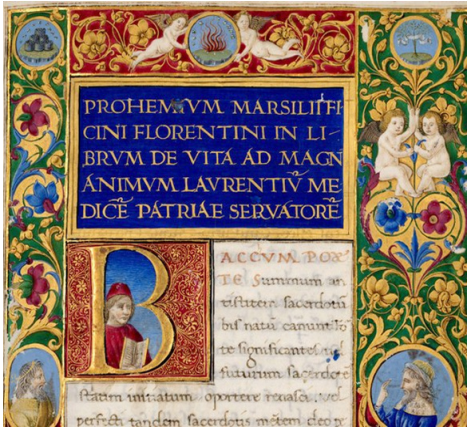 PROHEMIVM MARSILII FI
CINI FLORENTINI IN LI-
BRVM DE VITA AD MAGN
ANIMVM LAVRENTIV̄ ME
DICĒ PATRIAE SERVATORĒ
BACCVM POE
TE Summum an
tistitem sacerdotū
bis natū canunt
te significantes
futurum sacerdotē
statim initiatum oportere renasci: vel
perfecti tandem sacerdotis mētem deo